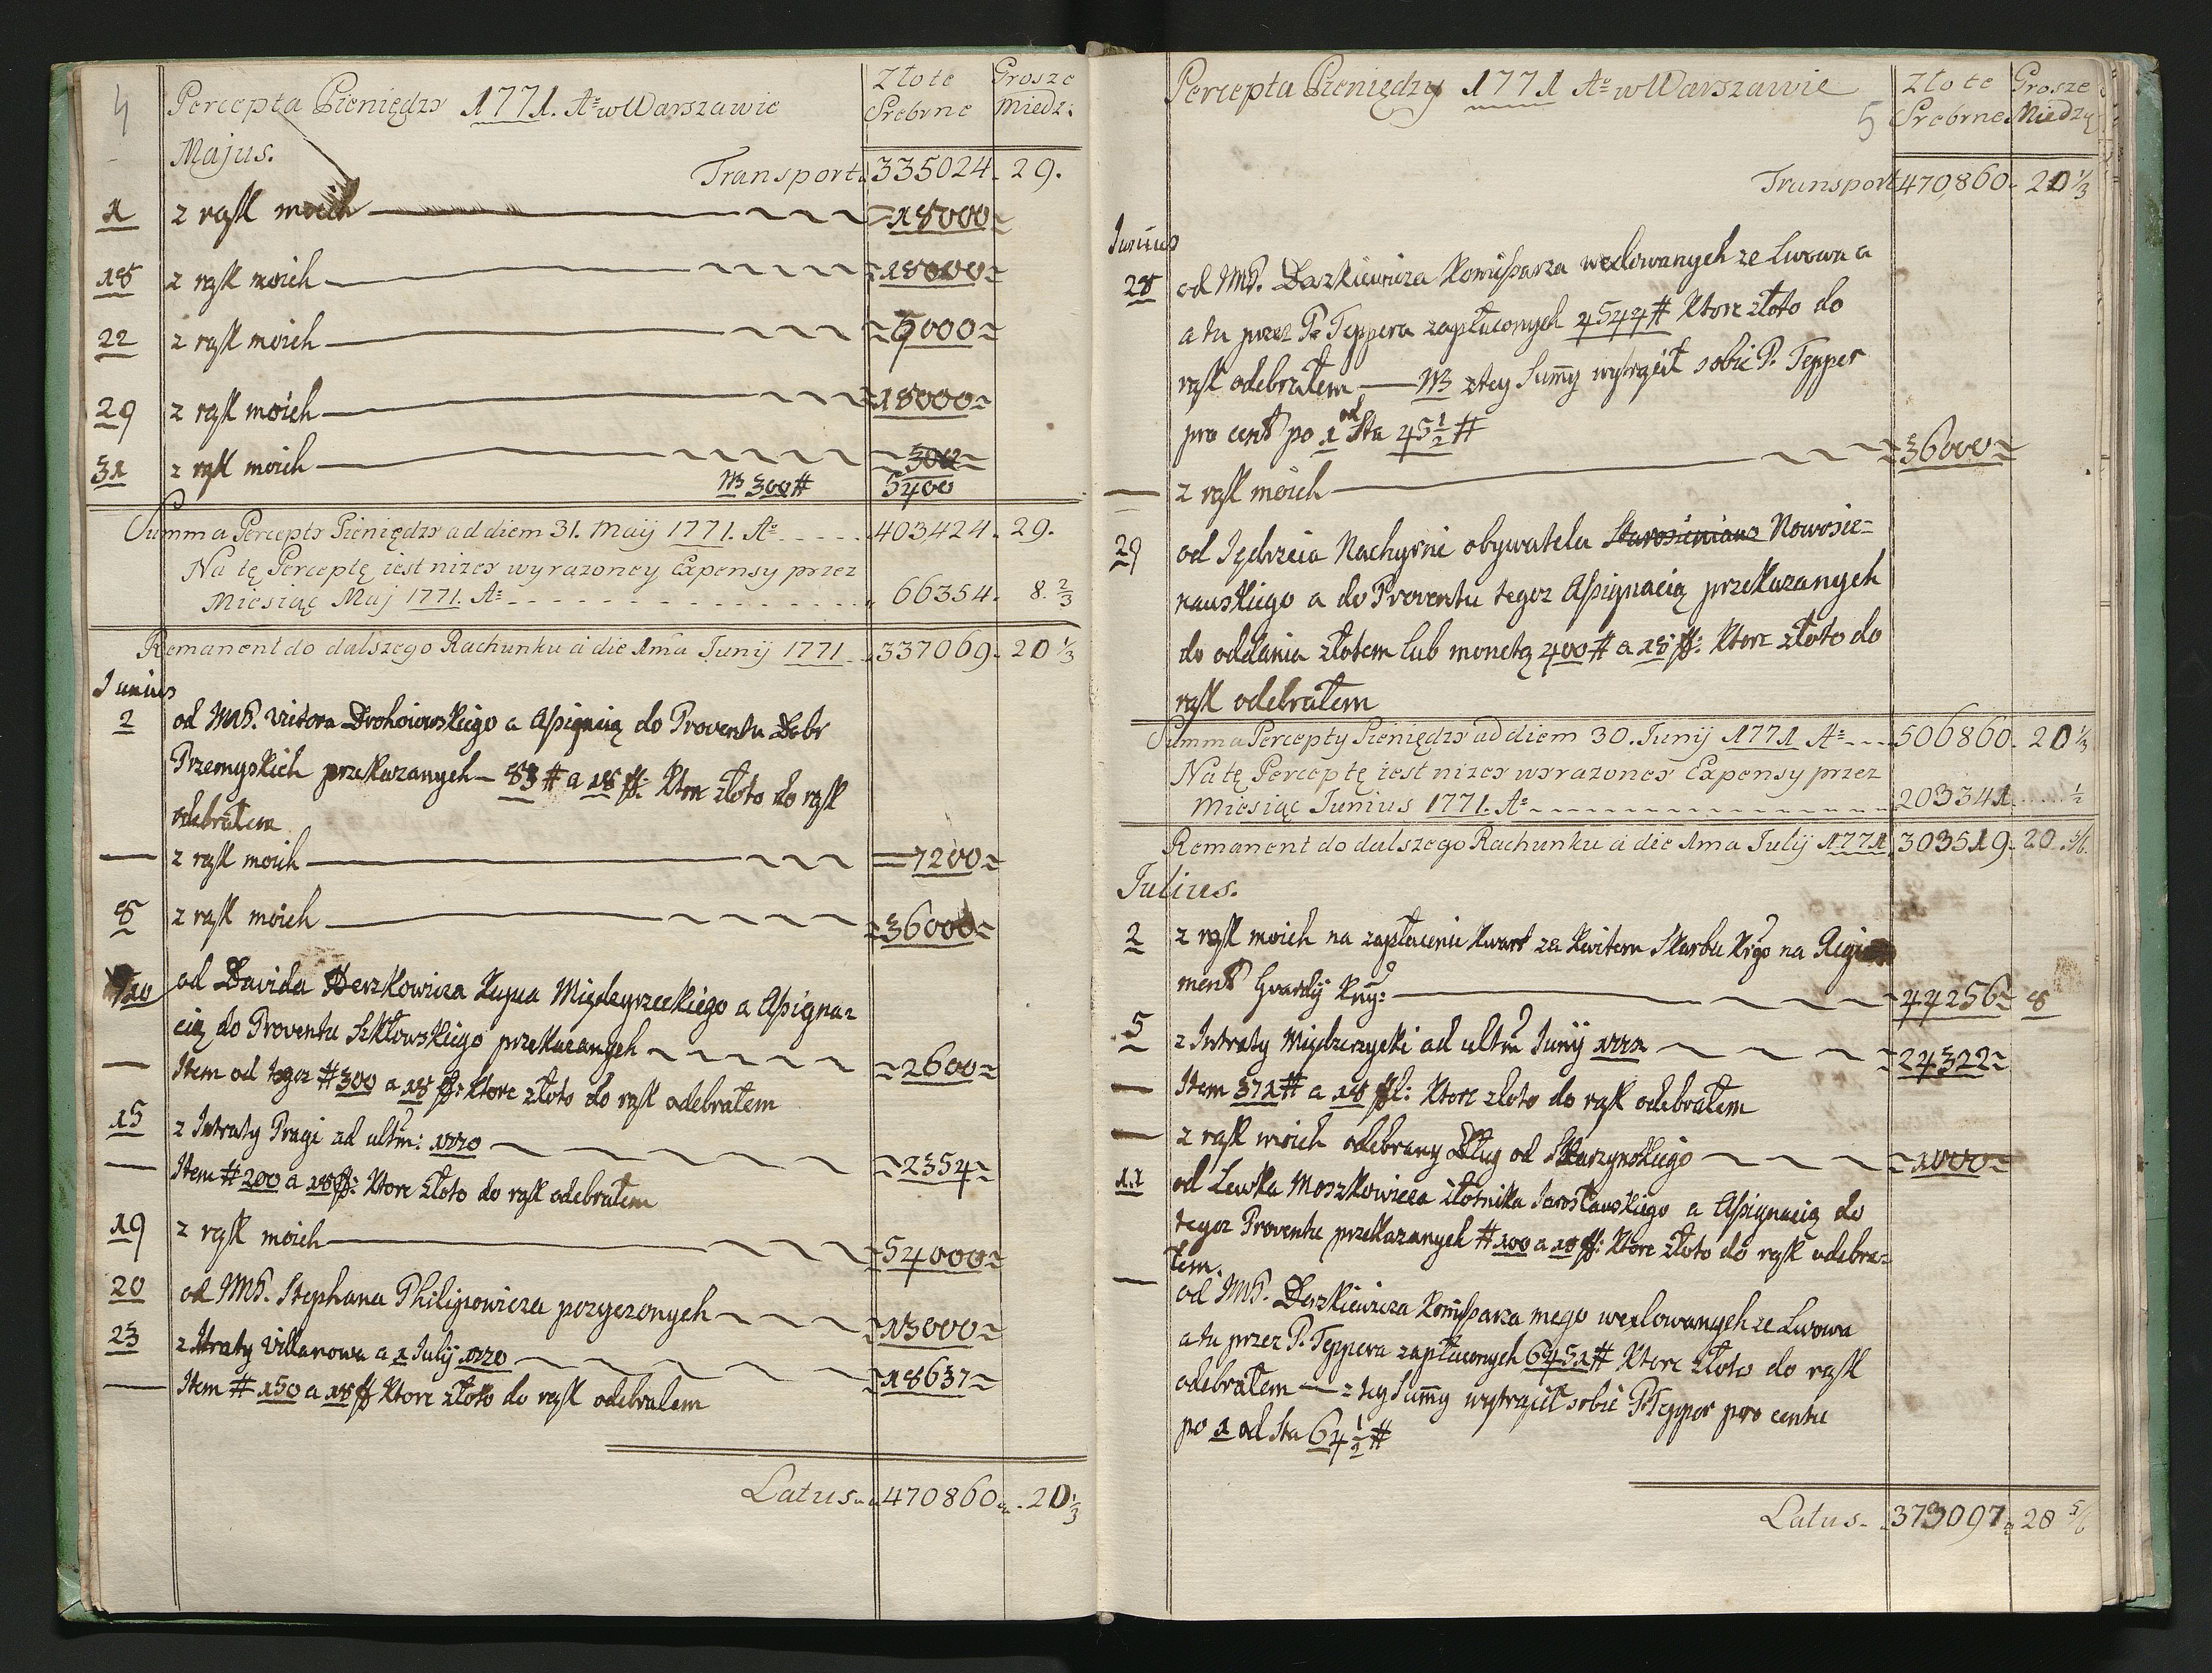 4
Percepta Pieniędzy 1771. Aº w Warszawie
Złote Srebrne
Grosze Miedz:
Majus.
Transport. 335024. 29.
1 z rąk moich 18000
18 z rąk moich 18000
22 z rąk moich 9000
29 z rąk moich 18000
31 z rąk moich 300
NB 300# 5400
Summa Percepty Pieniędzy ad diem 31. Maij 1771. Aº 403424. 29.
Na tę Perceptę iest nizey wyrazoney Expensy przez
Miesiąc Maj 1771. Aº 66354. 8. 2/3
Remanent do dalszego Rachunku a die 1ma Junij 1771 337069. 20 1/3
Junius
2 od MP. Victora Drohoiowskiego a Assignacią do Proventu Dobr
Przemyskich przekazanych 83 # a 18 ff: Ktore złoto do rąk
odebrałem
— z rąk moich 7200
8 z rąk moich 36000
10 od Davida Herzkowicza Kupca Międzyrzeckiego a Assigna=
cią do Proventu Szkłowskiego przekazanych 2600
— Item od tegoz # 300 a 18 ff: Ktore złoto do rąk odebrałem
15 z Intraty Pragi ad ultm: 1770 2354
— Item # 200 a 18 ff: Ktore złoto do rąk odebrałem
19 z rąk moich 54000
20 od MP. Stephana Philipowicza pozyczonych 13000
23 z Itraty Villanowa a 1 Julij 1770 18637
— Item # 150 a 18 ff Ktore złoto do rąk odebrałem
Latus 470860 20 1/3
Percepta Pieniędzy 1771 Aº w Warszawie
5
Złote Srebrne
Grosze Miedzy
Transport 470,860. 20 1/3
Junius
28 od MP. Daszkiewicza Komissarza wexlowanych ze Lwowa a
a tu przez P. Teppera zapłaconych 4544 # Ktore złoto do
rąk odebrałem — NB z tey Summy wytrącił sobie P. Tepper
pro cent po 1 od Sta 45 1/2 #
— z rąk moich 36000
29 od Jędrzeia Nachyrni obywatela Nowosie=
nauskiego a do Proventu tegoz Assignacią przekazanych
do oddania złotem lub monetą 400 # a 18 ff: Ktore złoto do
rąk odebrałem
Summa Percepty Pieniędzy ad diem 30. Junij 1771 Aº 506860. 20 1/3
Na tę Perceptę iest nizey wyrazoney Expensy przez
Miesiąc Junius 1771. Aº 203341. 1/2
Remanent do dalszego Rachunku a die 1ma Julij 1771. 303519. 20. 5/6.
Julius.
2 z rąk moich na zapłacenie Kwart za Kwitem Skarbu Krgo na Regi
ment Gwardij Kny: 44256 8
5 z Intraty Międzyrzycki ad ultm Junij 1771 24322
— Item 371 # a 18 ff: Ktore złoto do rąk odebrałem
— z rąk moich odebrany Dług od Skarzynskiego 1000
11 od Lewka Moszkowicza złotnika Jarosławskiego a Assignacią do
tegoz Proventu przekazanych # 100 a 18 ff: Ktore złoto do rąk odebra=
łem.
— od MP. Daszkiewicza Komissarza mego wexlowanych ze Lwowa
a tu przez P. Teppera zapłaconych 6451 # Ktore złoto do rąk
odebrałem — z tey Summy wytrącił sobie P. Tepper pro centu
po 1 od Sta 64 1/2 #
Latus 373097 28 5/6